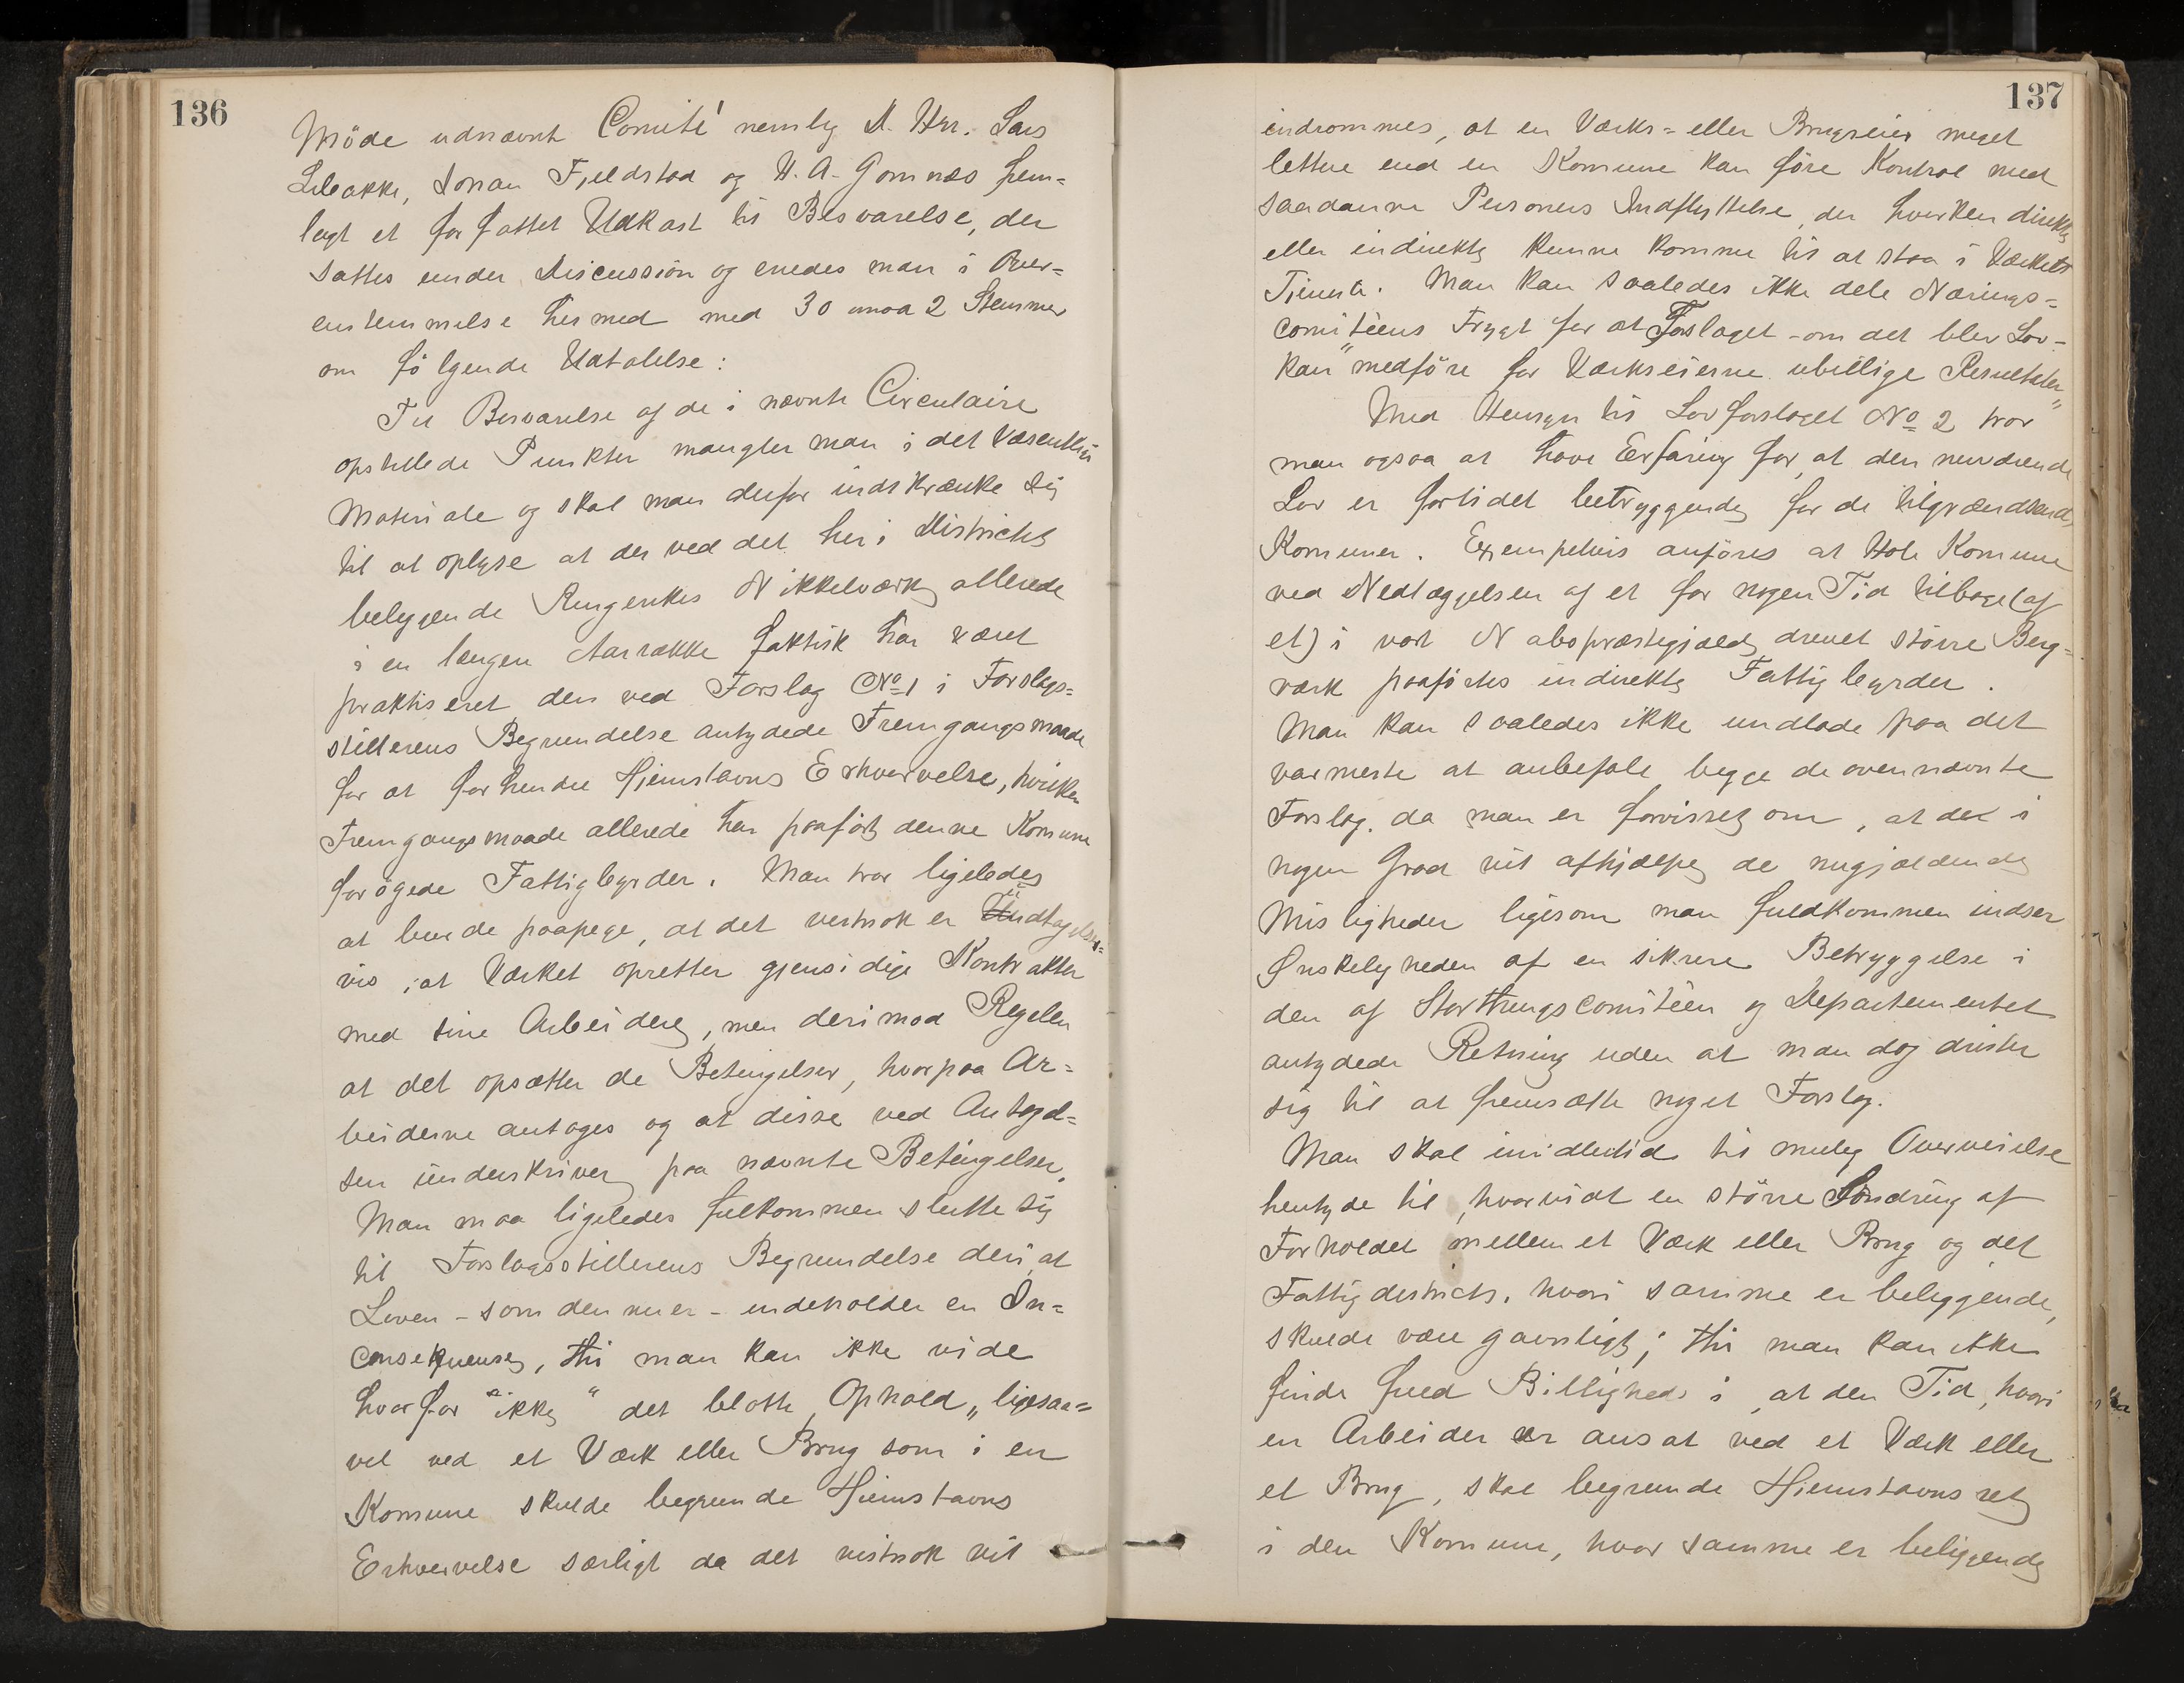 136
Möde udnævnt Comité nemlig D. Hrr. Lars
Lebakke, Johan Fjeldstad og H. A. Gomnæs frem-
lagt et forfattet Udkast til Besvarelse, der
sattes under Discussion og enedes man i Over-
ensstemmelse hermed med 30 mod 2 Stemmer
om følgende Udtalelse:
Til Besvarelse af de i nævnte Circulaire
opstillede Punkter mangler man i det Væsentlige
Materiale og skal man derfor indskrænke sig
til at oplyse at der ved det her i Districtet
beliggende Ringerikes Nikkelværk allerede
i en længere Aarrække faktisk har været
praktiseret den ved Forslag No 1 i Forslags-
stillerens Begrundelse antydede Fremgangsmaade
for at forhindre Hjemstavns Erhvervelse, hvilken
Fremgangsmaade allerede har paaført denne Komune
forøgede Fattigbyrder. Man tror ligeledes
at burde paapege, at det vistnok er Undtagelses-
vis, at Værket opretter gjensidige Kontrakter
med sine Arbeidere, men derimod Regelen
at det opsætter de Betingelser, hvorpaa Ar-
beiderne antages og at disse ved Antagel-
sen underskriver paa nævnte Betingelser.
Man maa ligeledes fulkommen slutte sig
til Forslagsstillerens Begrundelse deri, at
Loven – som den nu er – indeholder en In-
consekvense, thi man kan ikke vide
hvorfor "ikke" det blotte Ophold „ligesaa-
vel ved et Værk eller Brug som i en
Komune skulde begrunde Hjemstavns
Erhvervelse særligt da det vistnok vil
137
indrømmes, at en Værks- eller Brugseier meget
lettere end en Komune kan føre Kontrol med
saadanne Personers Indflyttelse, der hverken direkte
eller indirekte kunne komme til at staa i Værkets
Tjeneste. Man kan saaledes ikke dele Nærings-
comitéens Frygt for at Forslaget – om det blev Lov –
kan "medføre for Værkseierne ubillige Resultater"
Med Hensyn til Lovforslaget No 2 tror
man ogsaa at have Erfaring for, at den nuværende
Lov er forlidet betryggende for de tilgrændsende
Komuner. Exempelvis anføres at Hole Komune
ved Nedlæggelsen af et for nogen Tid tilbage (af
et) i vort Nabopræstegjæld drevet større Berg-
værk paaførtes indirekte Fattigbyrder.
Man kan saaledes ikke undlade paa det
varmeste at anbefale begge de ovennævnte
Forslag, da man er forvisset om, at det i
nogen Grad vil afhjælpe de nugjældende
Misligheder ligesom man fuldkommen indser
Ønskeligheden af en sikrere Betryggelse i
den af Storthingscomitéen og Departementet
antydede Retning uden at man dog drister
sig til at fremsætte noget Forslag.
Man skal imidlertid til mulig Overveielse
hentyde til, hvorvidt en större Sondring af
Forholdet mellem et Værk eller Brug og det
Fattigdistrict, hvori samme er beliggende,
skulde være gavnligt; thi man kan ikke
finde fuld Billighed i, at den Tid, hvori
en Arbeider er ansat ved et Værk eller
et Brug, skal begrunde Hjemstavnsret
i den Komune, hvor samme er beliggende